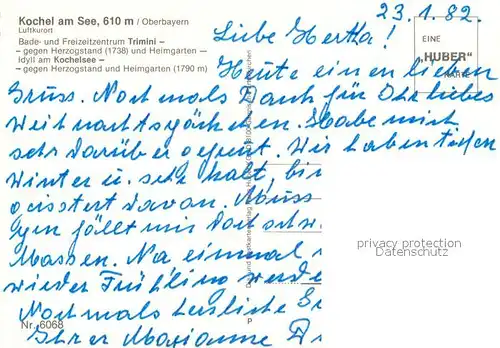 Kochel am See, 610 m / Oberbayern
Luftkurort
Bade- und Freizeitzentrum Trimini –
– gegen Herzogstand (1738) und Heimgarten –
Idyll am Kochelsee –
– gegen Herzogstand und Heimgarten (1790 m)
23.1.82.
EINE
„HUBER"
KARTE
Liebe Hertha!
Heute einen lieben
Gruss. Nochmals Dank für Ihr liebes
Weihnachtsgäckchen. Habe mich
sehr darüber gefreut. Wir haben tiefen
Winter u. sehr kalt, bin
geistert davon. Müss
gen fällt mir
Massen. Na einmal
wieder Frühling werde
Nochmals herzliche
Ihrer Marianne
privacy protection
Datenschutz
Nr. 6068
P